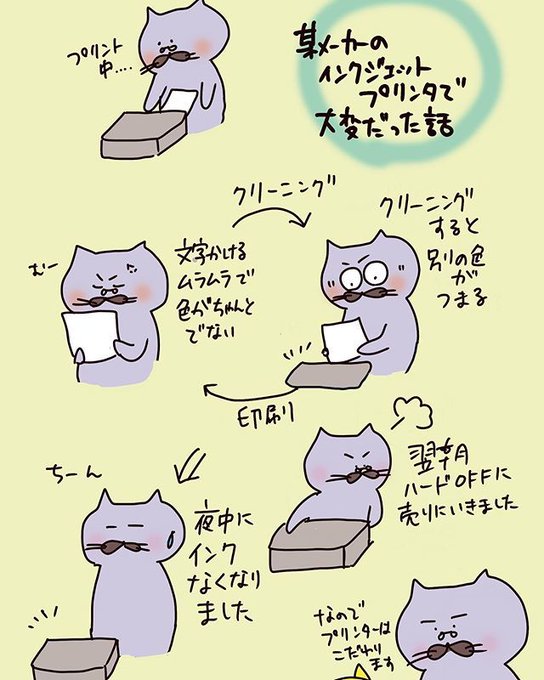 某メーカーの
インクジェット
プリンタで
大変だった話
プリント
中....
クリーニング
むー
文字かける
ムラムラで
色がちゃんと
でない
クリーニング
すると
別の色
が
つまる
印刷
ちーん
夜中に
インク
なくなり
ました
翌朝
ハードOFFに
売りにいきました
なので
プリンターは
こだわり
ます